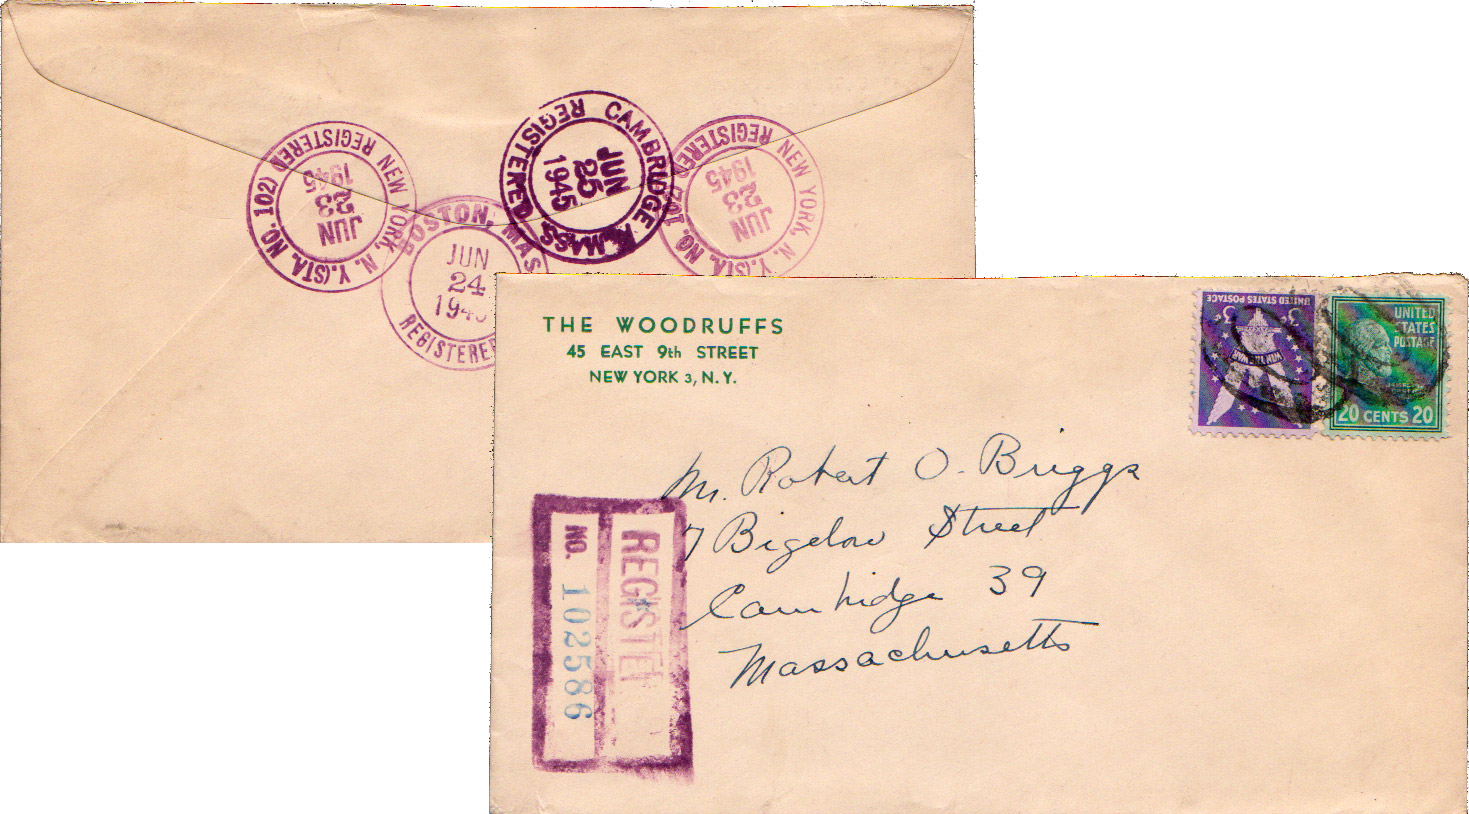 NEW YORK, N. Y. (STA. NO. 102)
REGISTERED
JUN
23
1945
BOSTON, MAS
JUN
24
194
REGISTERE
CAMBRIDGE MASS
REGISTERED
JUN
25
1945
NEW YORK, N. Y. (STA. NO. 102)
REGISTERED
JUN
23
1945
THE WOODRUFFS
45 EAST 9th STREET
NEW YORK 3, N. Y.
UNITED STATES POSTAGE
3¢ 3¢
WIN THE WAR
UNITED
STATES
POSTAGE
20 CENTS 20
Mr. Robert O. Briggs
7 Bigelow Street
Cambridge 39
Massachusetts
REGISTE
NO. 102586